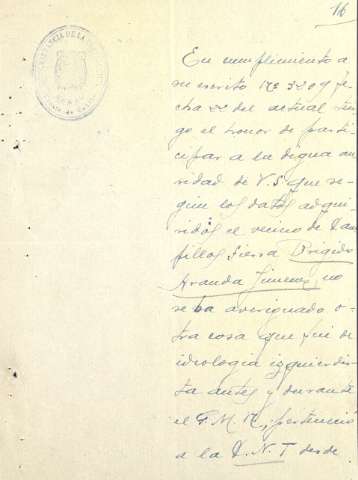 16
En cumplimiento a
su escrito nº 320 y fe-
cha 22 del actual ten-
go el honor de parti-
cipar a la digna au-
ridad de V.S. que se-
gún los datos adqui-
ridos el vecino de
Sierra Brigido
Aranda Jimenez, no
se ha averiguado o-
tra cosa que fue de
ideologia izquierdis-
ta antes y durante
el G.M.N., pertenecio
a la C.N.T desde